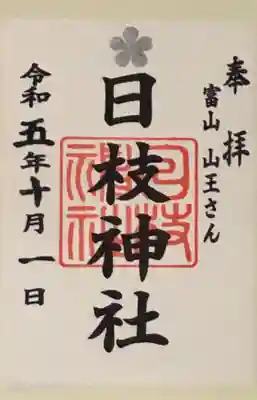 奉拝
富山 山王さん
日枝神社
日枝神社
令和五年十月一日